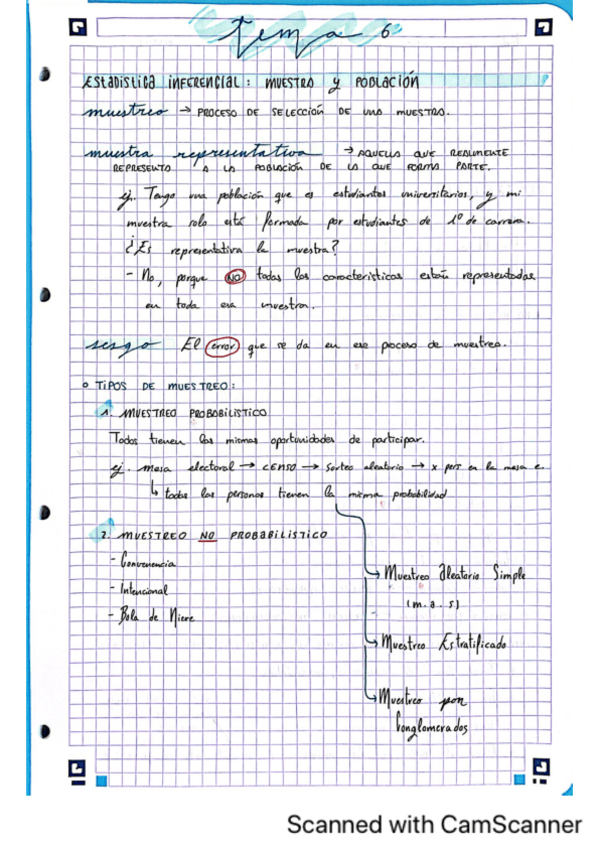 Tema 6
Estadística inferencial: muestra y población
muestreo → PROCESO DE SELECCIÓN DE UNA MUESTRA.
muestra representativa → AQUELLA QUE REALMENTE
REPRESENTA A LA POBLACIÓN DE LA QUE FORMA PARTE.
ej. Tengo una población que es estudiantes universitarios, y mi
muestra solo está formada por estudiantes de 1º de carrera.
¿Es representativa la muestra?
- No, porque NO todas las características están representadas
en toda esa muestra.
sesgo El error que se da en ese proceso de muestreo.
o TIPOS DE MUESTREO:
1. MUESTREO PROBABILISTICO
Todos tienen las mismas oportunidades de participar.
ej. mesa electoral → CENSO → Sorteo aleatorio → x pers en la mesa e.
↳ todas las personas tienen la misma probabilidad
2. MUESTREO NO PROBABILISTICO
- Convenencia
- Intencional
- Bola de Nieve
→ Muestreo Aleatorio Simple
(m.a.s)
→ Muestreo Estratificado
→ Muestreo por
Conglomerados
Scanned with CamScanner